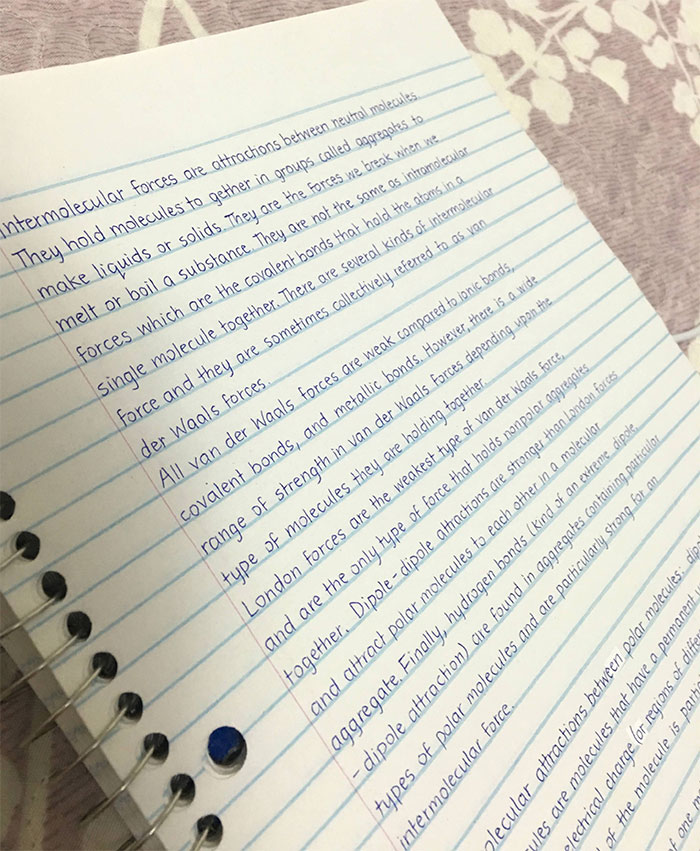 Intermolecular forces are attractions between neutral molecules.
They hold molecules to gether in groups called aggregates to
make liquids or solids. They are the forces we break when we
melt or boil a substance. They are not the same as intramolecular
forces which are the covalent bonds that hold the atoms in a
single molecule together. There are several kinds of intermolecular
force and they are sometimes collectively referred to as van
der Waals forces.
All van der Waals forces are weak compared to ionic bonds,
covalent bonds, and metallic bonds. However, there is a wide
range of strength in van der Waals forces depending upon the
type of molecules they are holding together.
London forces are the weakest type of van der Waals force,
and are the only type of force that holds nonpolar aggregates
together. Dipole-dipole attractions are stronger than London forces
and attract polar molecules to each other in a molecular
aggregate. Finally, hydrogen bonds (kind of an extreme dipole
-dipole attraction) are found in aggregates containing particular
types of polar molecules and are particularly strong for an
intermolecular force.
molecular attractions between polar molecules:
are molecules that have a permanent
electrical charge for regions of
of the molecule is
of one